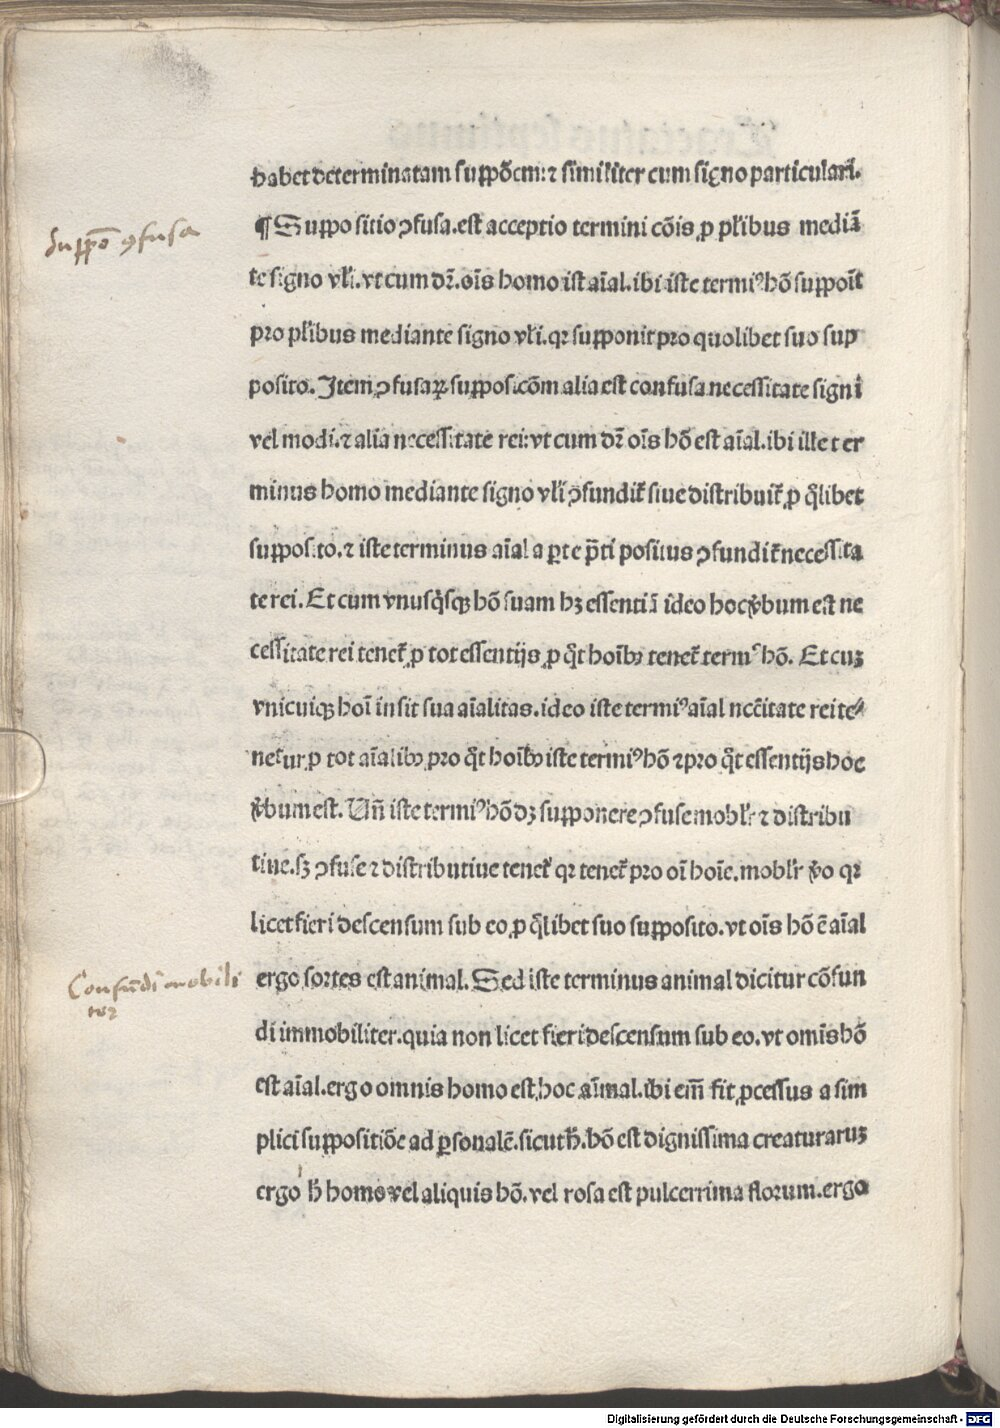 habet determinatam suppõem: ⁊ similiter cum signo particulari.
Suppõ ꝯfusa
¶ Suppositio ꝯfusa. est acceptio termini cõis ꝓ pl̃ibus mediã
te signo vl̃i. vt cum dr̃. oĩs homo ist aĩal. ibi iste termiꝰ hõ suppoĩt
pro pl̃ibus mediante signo vl̃i. qr supponit pro quolibet suo sup
posito. Item ꝯfusaꝝ supposicõm alia est confusa necessitate signi
vel modi. ⁊ alia necessitate rei: vt cum dr̃ oĩs hõ est aĩal. ibi ille ter
minus homo mediante signo vl̃i ꝯfundit̃ siue distribuit̃ ꝓ q̃libet
supposito. ⁊ iste terminus aĩal a ꝑte p̃ti positus ꝯfundit̃ necessita
te rei. Et cum vnusq̃sqꝫ hõ suam hꝫ essentiã ideo hoc v̾bum est ne
cessitate rei tenet̃ ꝓ tot essentijs ꝓ q̃t hoĩbꝫ tenet̃ termꝰ hõ. Et cuꝫ
vnicuiqꝫ hoĩ insit sua aĩalitas. ideo iste termiꝰ aĩal nccĩtate rei te⸗
netur ꝓ tot aĩalibꝫ pro q̃t hoĩbꝫ iste termiꝰ hõ ⁊ pro q̃t essentijs hoc
v̾bum est. Vñ iste termiꝰ hõ dꝫ supponere ꝯfuse mobl̃r ⁊ distribu
tiue. sꝫ ꝯfuse ⁊ distributiue tenet̃ qr tenet̃ pro oĩ hoĩe. mobl̃r v̾o qr
licet fieri descensum sub eo ꝓ q̃libet suo supposito. vt oĩs hõ ẽ aĩal
Confũdi mobili
ter
ergo sortes est animal. Sed iste terminus animal dicitur cõfun
di immobiliter. quia non licet fieri descensum sub eo. vt omĩs hõ
est aĩal. ergo omnis homo est hoc aĩmal. ibi em̃ fit ꝓcessus a sim
plici suppositiõe ad ꝑsonalẽ. sicut h̃. hõ est dignissima creaturaruꝫ
ergo h̃ homo vel aliquis hõ. vel rosa est pulcerrima florum. ergo
Digitalisierung gefördert durch die Deutsche Forschungsgemeinschaft - DFG